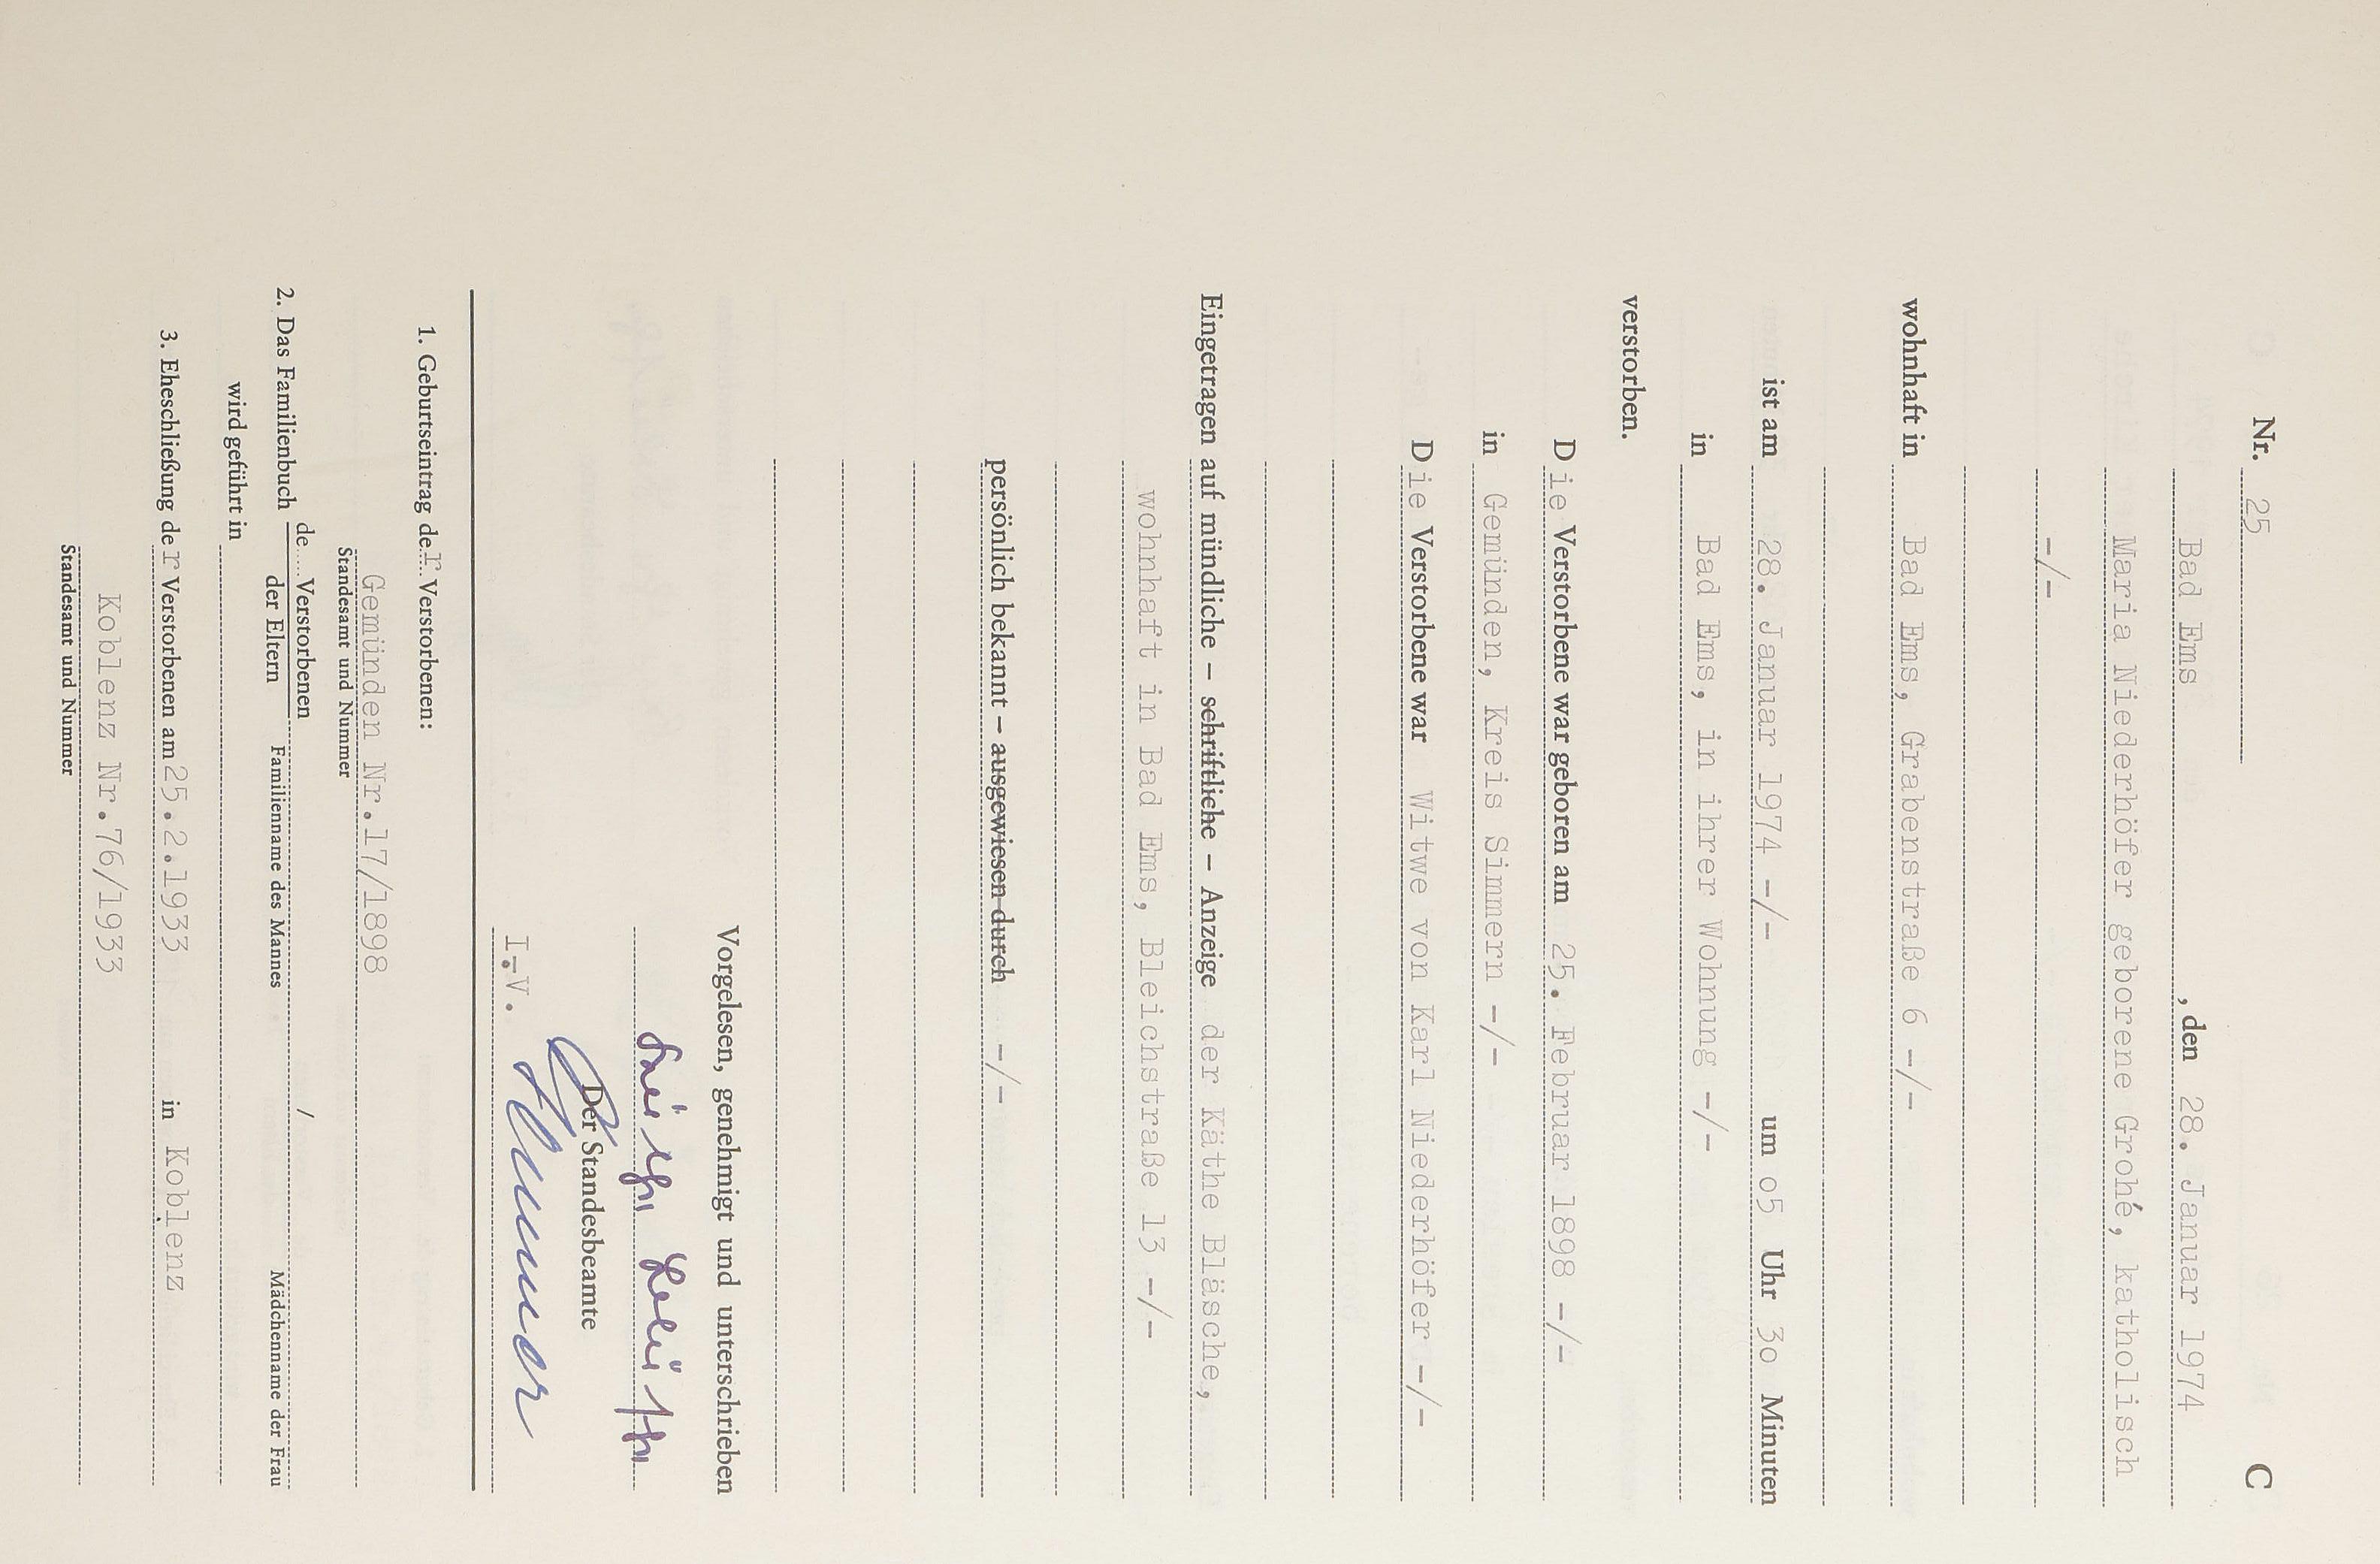 C
Nr. 25
Bad Ems , den 28. Januar 1974
Maria Niederhöfer geborene Grohé, katholisch
-/-
wohnhaft in Bad Ems, Grabenstraße 6 -/-
ist am 28. Januar 1974 -/- um o5 Uhr 3o Minuten
in Bad Ems, in ihrer Wohnung -/-
verstorben.
Die Verstorbene war geboren am 25. Februar 1898 -/-
in Gemünden, Kreis Simmern -/-
Die Verstorbene war Witwe von Karl Niederhöfer -/-
Eingetragen auf mündliche – schriftliche – Anzeige der Käthe Bläsche,
wohnhaft in Bad Ems, Bleichstraße 13 -/-
persönlich bekannt – ausgewiesen durch -/-
Vorgelesen, genehmigt und unterschrieben
Der Standesbeamte
I.V.
1. Geburtseintrag der Verstorbenen:
Gemünden Nr.17/1898
Standesamt und Nummer
2. Das Familienbuch de.... Verstorbenen /
der Eltern Familienname des Mannes Mädchenname der Frau
wird geführt in
3. Eheschließung der Verstorbenen am 25.2.1933 in Koblenz
Koblenz Nr.76/1933
Standesamt und Nummer